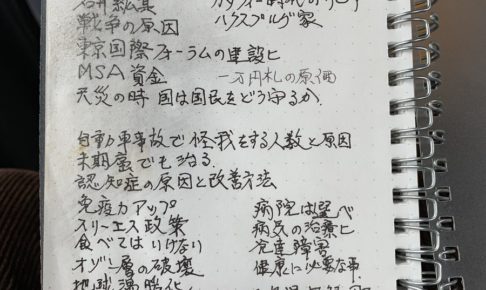 石井紘基
戦争の原因
ハプスブルグ家
東京国際フォーラムの建設ヒ
MSA資金 一万円札の原価
天災の時 国は国民をどう守るか
自動車事故で怪我をする人数と原因
末期癌でも治る
認知症の原因と改善方法
免疫力アップ
スリーエス政策
食べてはいけない
オゾン層の破壊
地球温暖化
病院は選べ
病気の治療ヒ
発達障害
健康に必要な事